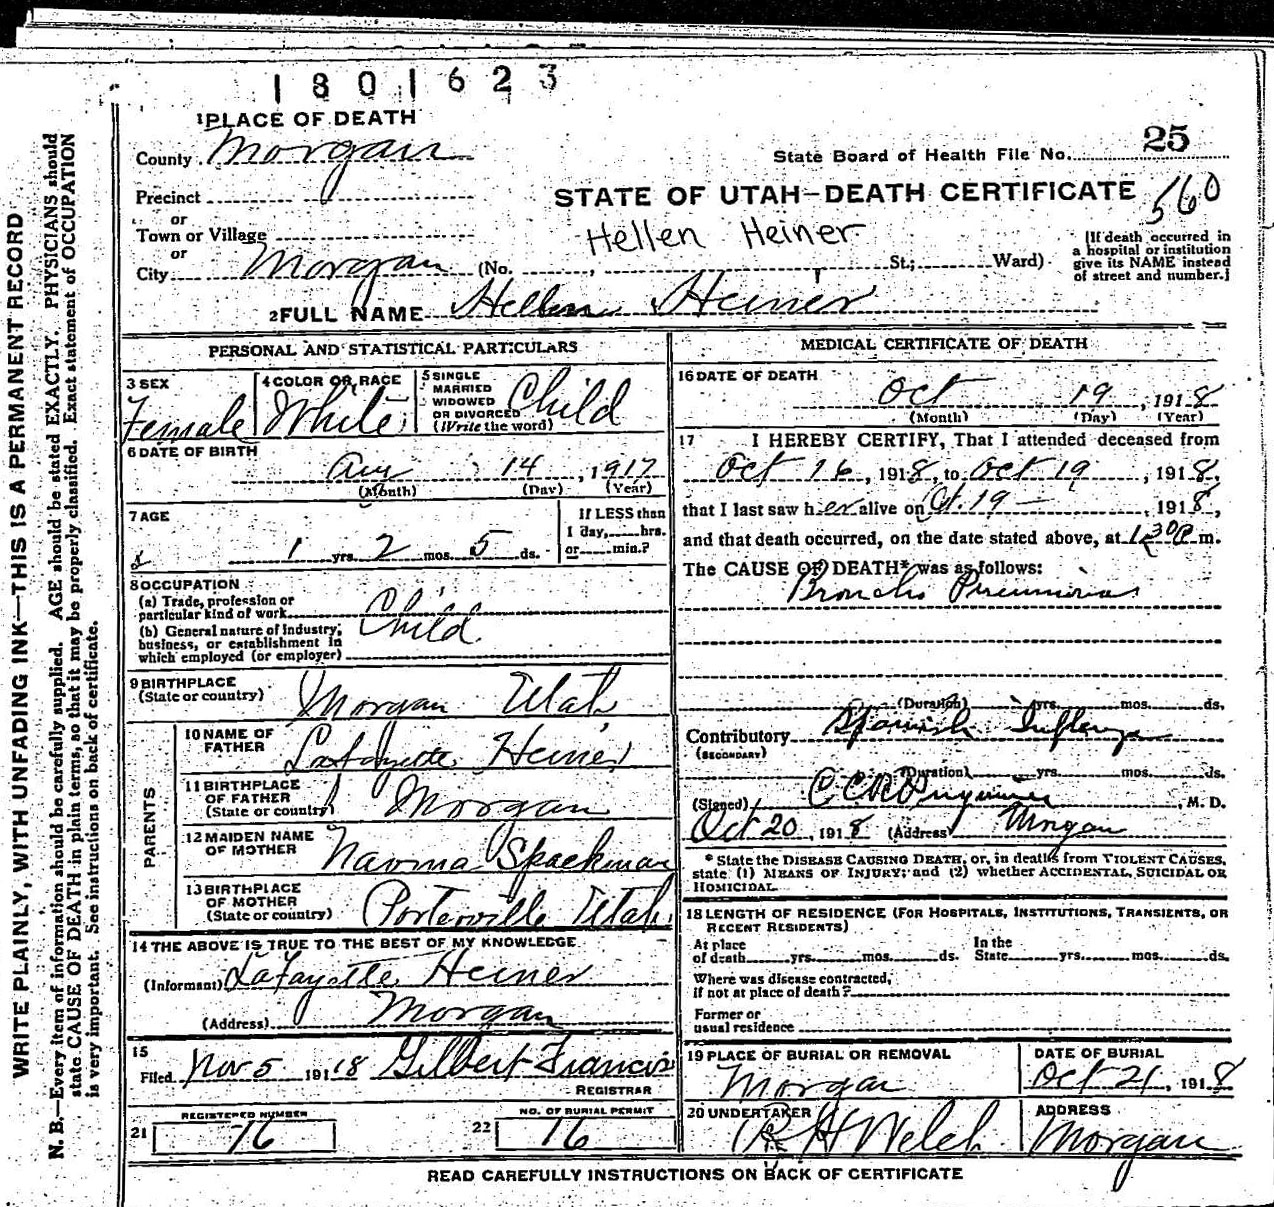 1801623
1 PLACE OF DEATH
County Morgan
25
State Board of Health File No.
Precinct
STATE OF UTAH—DEATH CERTIFICATE 560
or
Town or Village
Hellen Heiner
or
City Morgan (No. , St.; Ward)
[If death occurred in
a hospital or institution
give its NAME instead
of street and number.]
2 FULL NAME Hellen Heiner
PERSONAL AND STATISTICAL PARTICULARS
3 SEX
Female
4 COLOR OR RACE
White
5 SINGLE
MARRIED
WIDOWED
OR DIVORCED
(Write the word)
Child
6 DATE OF BIRTH
Aug 14, 1917
(Month) (Day) (Year)
7 AGE
1 yrs. 2 mos. 5 ds.
If LESS than
1 day, hrs.
or min.?
8 OCCUPATION
(a) Trade, profession or
particular kind of work
Child
(b) General nature of industry,
business, or establishment in
which employed (or employer)
9 BIRTHPLACE
(State or country)
Morgan Utah
PARENTS
10 NAME OF
FATHER
Lafayette Heiner
11 BIRTHPLACE
OF FATHER
(State or country)
Morgan
12 MAIDEN NAME
OF MOTHER
Naoma Spackman
13 BIRTHPLACE
OF MOTHER
(State or country)
Porterville Utah
14 THE ABOVE IS TRUE TO THE BEST OF MY KNOWLEDGE
(Informant) LaFayette Heiner
(Address) Morgan
15
Filed Nov 5 191 18 Gilbert Francis
REGISTRAR
REGISTERED NUMBER
21 76
NO. OF BURIAL PERMIT
22 16
MEDICAL CERTIFICATE OF DEATH
16 DATE OF DEATH
Oct 19, 1918
(Month) (Day) (Year)
17 I HEREBY CERTIFY, That I attended deceased from
Oct 16, 1918, to Oct 19, 1918,
that I last saw her alive on Oct. 19 —, 1918,
and that death occurred, on the date stated above, at 1:30 P m.
The CAUSE OF DEATH* was as follows:
Broncho Pneumonia
(Duration) yrs. mos. ds.
Contributory Spanish Influenza
(SECONDARY)
(Duration) yrs. mos. ds.
(Signed) M. D.
Oct 20, 1918 (Address) Morgan
* State the DISEASE CAUSING DEATH, or, in deaths from VIOLENT CAUSES,
state (1) MEANS OF INJURY; and (2) whether ACCIDENTAL, SUICIDAL OR
HOMICIDAL.
18 LENGTH OF RESIDENCE (FOR HOSPITALS, INSTITUTIONS, TRANSIENTS, OR
RECENT RESIDENTS)
At place
of death yrs. mos. ds.
In the
State yrs. mos. ds.
Where was disease contracted,
if not at place of death?
Former or
usual residence
19 PLACE OF BURIAL OR REMOVAL
Morgan
DATE OF BURIAL
Oct 21, 1918
20 UNDERTAKER
R H Welch
ADDRESS
Morgan
READ CAREFULLY INSTRUCTIONS ON BACK OF CERTIFICATE
WRITE PLAINLY, WITH UNFADING INK—THIS IS A PERMANENT RECORD
N. B.—Every item of information should be carefully supplied. AGE should be stated EXACTLY. PHYSICIANS should
state CAUSE OF DEATH in plain terms, so that it may be properly classified. Exact statement of OCCUPATION
is very important. See instructions on back of certificate.